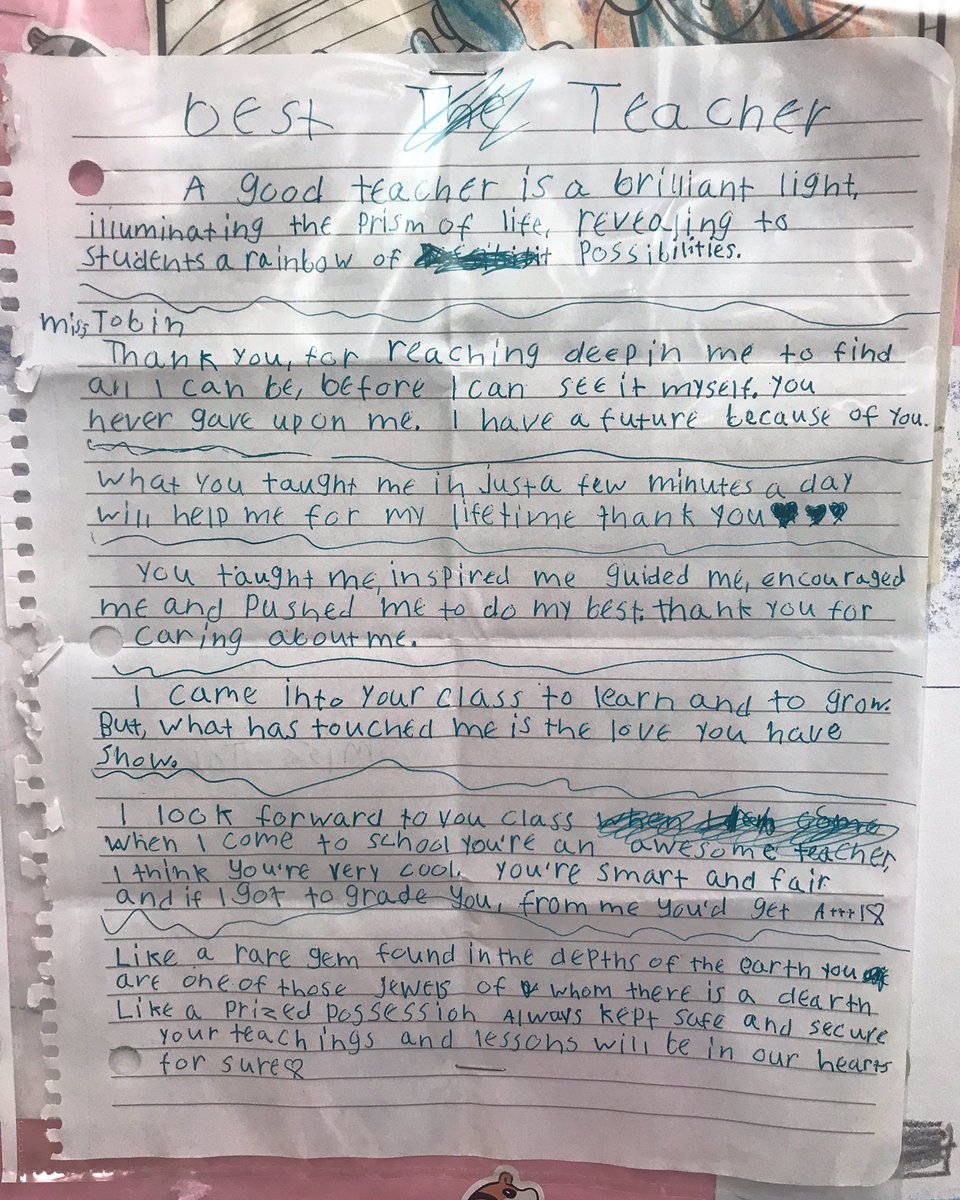 best Teacher
A good teacher is a brilliant light,
illuminating the prism of life, revealing to
students a rainbow of possibilities.
miss Tobin
Thank you, for reaching deep in me to find
all I can be, before I can see it myself. you
never gave up on me. I have a future because of you.
what you taught me in just a few minutes a day
will help me for my lifetime thank you
you taught me, inspired me guided me, encouraged
me and pushed me to do my best. thank you for
caring about me.
I came into your class to learn and to grow.
But, what has touched me is the love you have
show.
I look forward to you class
when I come to school you're an awesome teacher,
I think you're very cool. you're smart and fair
and if I got to grade you, from me you'd get A+++!
Like a rare gem found in the depths of the earth you
are one of those jewels of whom there is a dearth
Like a prized possession Always kept safe and secure
your teachings and lessons will be in our hearts
for sure